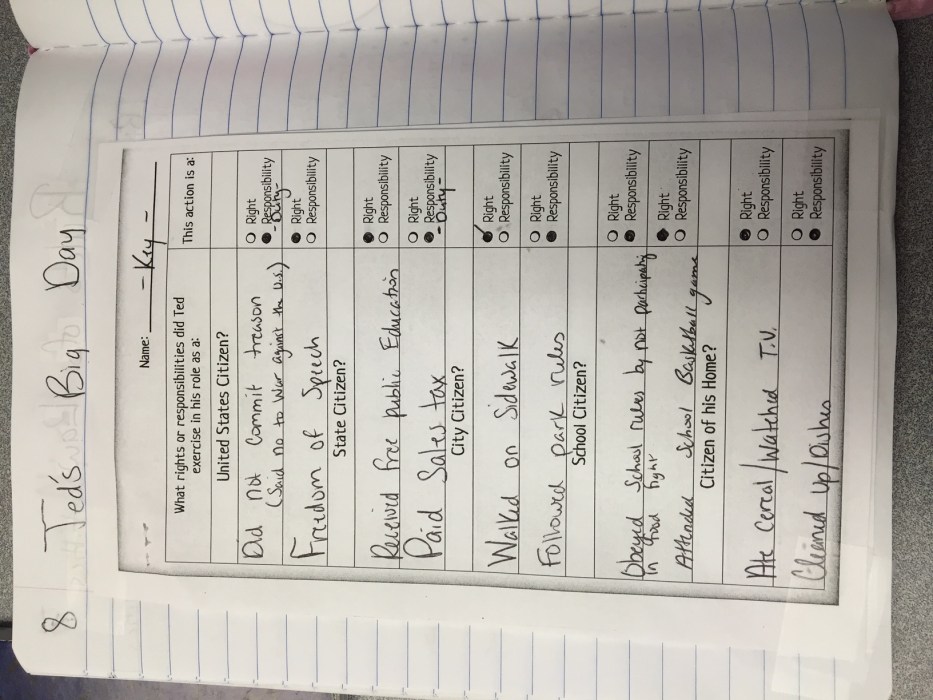 8 Ted's Big Day
Name: - Key -
What rights or responsibilities did Ted
exercise in his role as a:
This action is a:
United States Citizen?
Did not commit treason
(Said no to war against the U.S.)
Right
Responsibility
- Duty -
Freedom of Speech
Right
Responsibility
State Citizen?
Received free public Education
Right
Responsibility
Paid Sales tax
Right
Responsibility
- Duty -
City Citizen?
Walked on Sidewalk
Right
Responsibility
Followed park rules
Right
Responsibility
School Citizen?
Obeyed School rules by not participating
in food fight
Right
Responsibility
Attended School Basketball game
Right
Responsibility
Citizen of his Home?
Ate Cereal/Watched T.V.
Right
Responsibility
Cleaned up/Dishes
Right
Responsibility